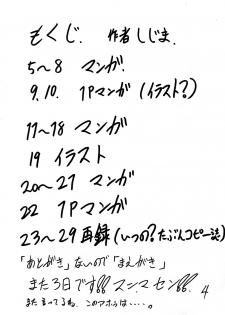 もくじ. 作者 しじま.
5〜8 マンガ.
9.10. 1Pマンガ(イラスト?)
11〜18 マンガ
19 イラスト
20〜21 マンガ
22 1Pマンガ
23〜29 再録(いつの?たぶんコピー誌)
「あとがき」ないので「まえがき」
また3日です!! スンマセン!!
また言ってるね、このアホゥは・・・・。
4